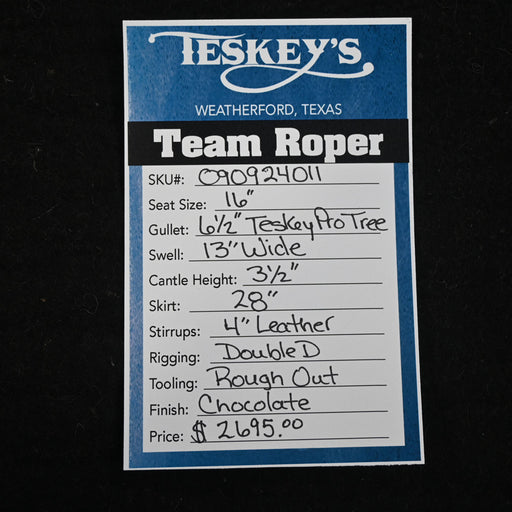 TESKEY'S
WEATHERFORD, TEXAS
Team Roper
SKU#: 090924011
Seat Size: 16"
Gullet: 6½" Teskey Pro Tree
Swell: 13" Wide
Cantle Height: 3½"
Skirt: 28"
Stirrups: 4" Leather
Rigging: Double D
Tooling: Rough Out
Finish: Chocolate
Price: $ 2695.00